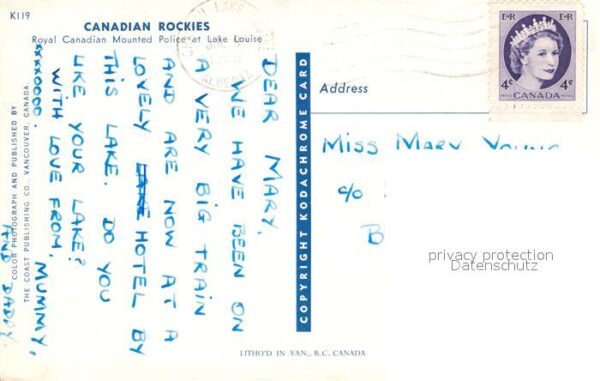 K119
CANADIAN ROCKIES
Royal Canadian Mounted Police at Lake Louise
DEAR MARY,
WE HAVE BEEN ON
A VERY BIG TRAIN
AND ARE NOW AT A
LOVELY LAKE HOTEL BY
THIS LAKE. DO YOU
LIKE YOUR LAKE?
WITH LOVE FROM, MUMMY,
AND DADDY
xxxxoooo.
COLOR PHOTOGRAPH AND PUBLISHED BY
THE COAST PUBLISHING CO. VANCOUVER, CANADA
COPYRIGHT KODACHROME CARD
LAKE
E II R E II R
4¢ CANADA 4¢
Address
MISS MARY YOUNG
C/O
B
privacy protection
Datenschutz
LITHO'D IN VAN., B.C. CANADA